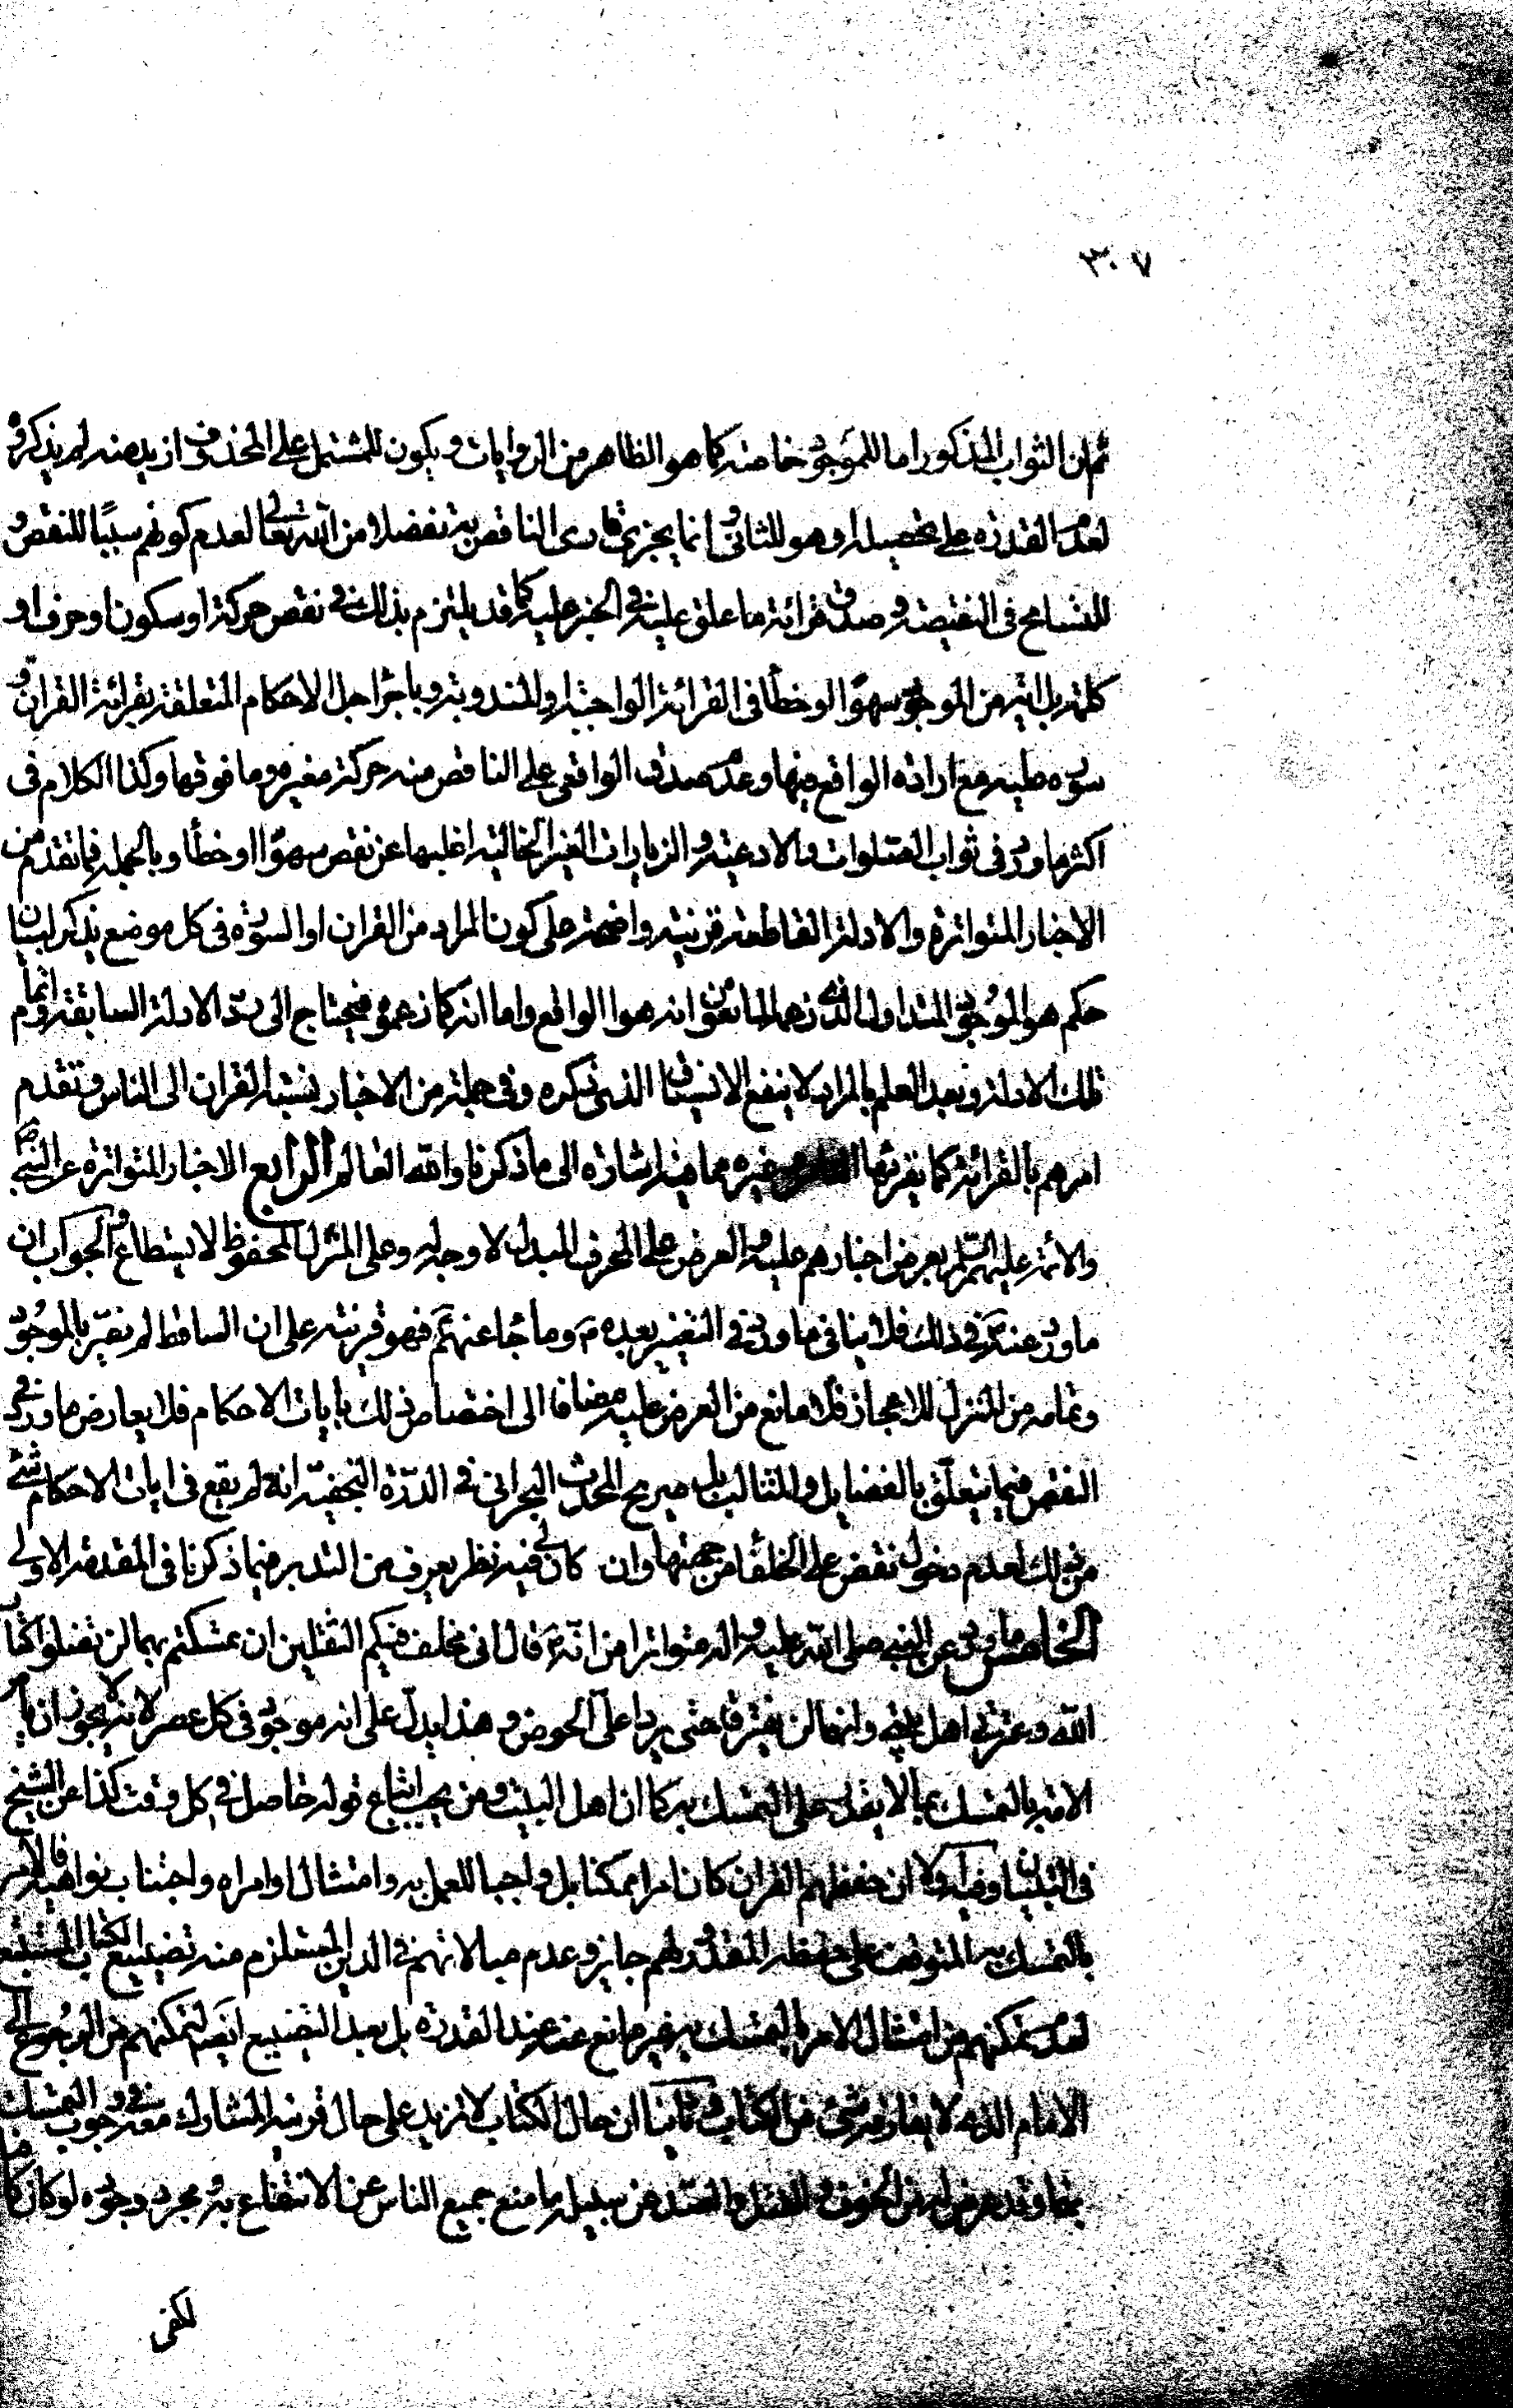 ٣٠٧
ثم ان الثواب المذكور اما للموجود خاصة كما هو الظاهر من الروايات ويكون للمشتمل على المحذوف ازيد منه لم يذكروه
لعدم القدرة على تحصيله او هو للثاني وانما يجزى قارى الناقص به تفضلا من الله تعالى لعدم كونهم سببًا للنقص و
للتسامح فى النقيصة وصدق قرائة ما علق عليه فى الخبر عليه كما قد يلتزم بذلك فى نقص حركة او سكون او حرف او
كلمة بل اية من الموجود سهوًا او خطأ فى القرائة الواجبة او المندوبة وباجراء جل الاحكام المتعلقة بقرائة القران و
سوره عليه مع ارادة الواقع منها وعدم صدق الواقعى على الناقص منه حركة مغيرة وما فوقها وكذا الكلام فى
اكثر ما ورد فى ثواب الصلوات والادعية والزيارات الغير الخالية اغلبها عن نقص سهوًا او خطأ وبالجملة فما تقدم من
الاخبار المتواترة والادلة القاطعة قرينة واضحة على كون المراد من القران او السورة فى كل موضع يذكر لبيان
حكم هو الموجود المتداول الذى زعم المانعون انه هو الواقع واما انه كما زعموه فيحتاج الى ردّ الادلة السابقة وانما
تلك الادلة وبعد العلم بالمراد لا ينفع الاستيناف الذى ذكره وفى جملة من الاخبار نسبة القران الى الناس وتقدم
امرهم بالقرائة كما يقرئها وغيره مما فيه اشارة الى ما ذكرنا والله العالم الرابع الاخبار المتواترة عن النبى ص
والائمة عليهم السلم بعرض اخبارهم عليه والعرض على المحرف المبدل لا وجه له وعلى المنزل المحفوظ لا يستطاع والجواب ان
ما ورد عنه فى ذلك فلا ينافى ما ورد فى التغيير بعده وما جاء عنهم فهو قرينة على ان الساقط لم يضرّ بالموجود
وتمامه من المنزل للاعجاز فلا مانع من العرض عليه مضافا الى اختصاص ذلك بايات الاحكام فلا يعارض ما ورد فى
النقص فيما يتعلّق بالفضايل والمثالب بل صريح المحدث البحرانى فى الدرّة النجفيّة انه لم يقع فى ايات الاحكام شئ
من ذلك لعدم دخول نقص على الخلفاء من جهتها وان كان لى فيه نظر يعرف من التدبر فيما ذكرنا فى المقدمة الاولى
الخامس ما ورد عن النبى صلى الله عليه واله متواترا من انّه قال انى مخلف فيكم الثقلين ان تمسكتم بهما لن تضلوا كتاب
الله وعترتى اهل بيتى وانهما لن يفترقا حتى يردا علىّ الحوض وهذا يدل على انه موجود فى كل عصر لانه لا يجوز ان يامر
الامة بالتمسك بما لا يقدر على التمسك به كما ان اهل البيت ومن يجب اتباع قوله حاصل فى كل وقت كذا عن الشيخ
فى التبيان وفيه اولا ان حفظهم القران كان امرا ممكنا بل واجبا للعمل به وامتثال اوامره واجتناب نواهيه فالامر
بالتمسك به المتوقف على حفظه المقدور لهم جايز وعدم مبالاتهم فى الدين المستلزم منه تضييع الكتاب المستتبع
لعدم تمكنهم من امتثال الامر بالتمسك به غير مانع عنه عند القدرة بل بعد التضييع ايضًا لتمكنهم من الرجوع الى
الامام الذى لا يفارقه شئ من الكتاب وثانيا ان حال الكتاب لا تزيد على حال قرينه المشارك معه فى وجوب التمسك
بهما وقد عرض له من الخوف والقتل والصد عن سبيله ما منع جميع الناس عن الانتفاع به ومجرد وجوده لو كان كافيا
لكفى